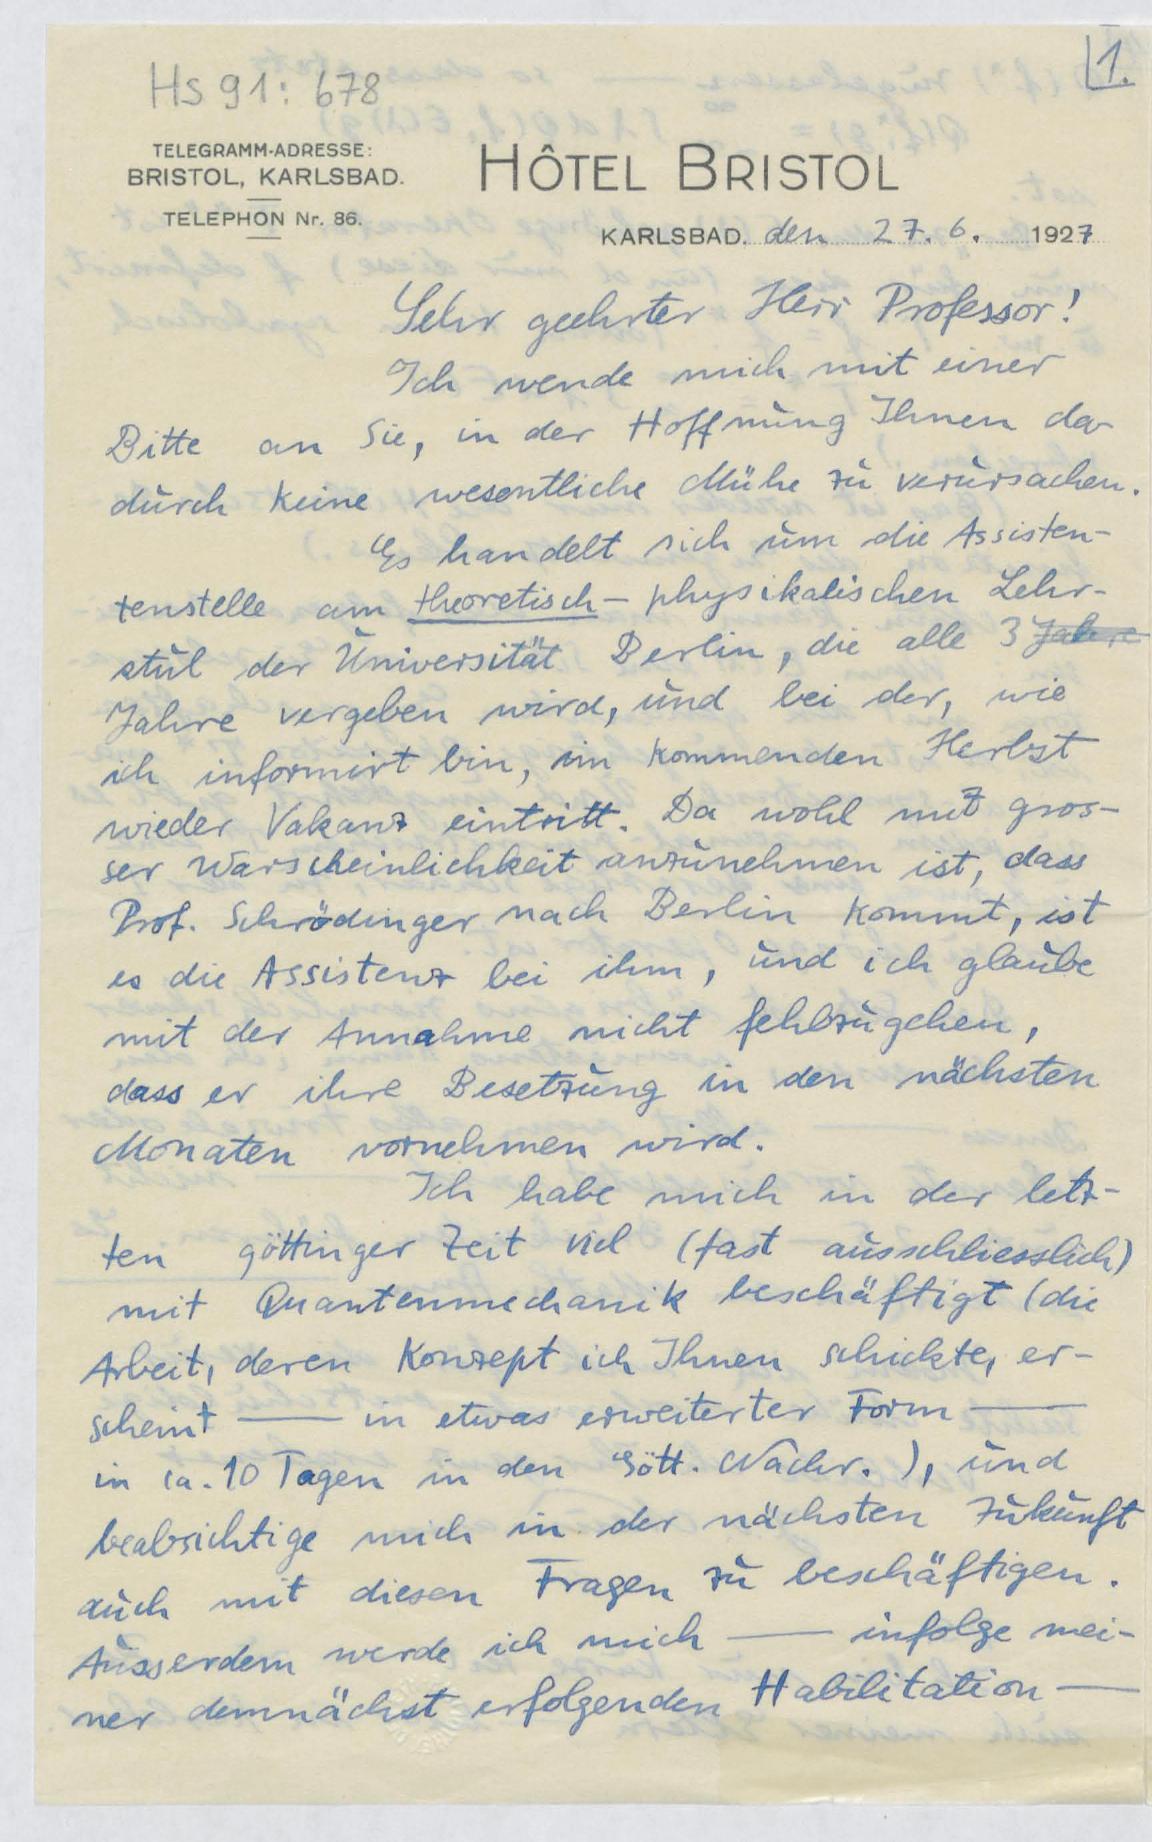 1.
Hs 91: 678
TELEGRAMM-ADRESSE:
BRISTOL, KARLSBAD.
TELEPHON Nr. 86.
HÔTEL BRISTOL
KARLSBAD. den 27. 6. 1927
Sehr geehrter Herr Professor!
Ich wende mich mit einer
Bitte an Sie, in der Hoffnung Ihnen da-
durch keine wesentliche Mühe zu verursachen.
Es handelt sich um die Assisten-
tenstelle am theoretisch-physikalischen Lehr-
stul der Universität Berlin, die alle 3 Jahre
Jahre vergeben wird, und bei der, wie
ich informirt bin, im kommenden Herbst
wieder Vakanz eintritt. Da wohl mit gros-
ser Warscheinlichkeit anzunehmen ist, dass
Prof. Schrödinger nach Berlin kommt, ist
es die Assistenz bei ihm, und ich glaube
mit der Annahme nicht fehlzugehen,
dass er ihre Besetzung in den nächsten
Monaten vornehmen wird.
Ich habe mich in der letz-
ten göttinger Zeit viel (fast ausschliesslich)
mit Quantenmechanik beschäftigt (die
Arbeit, deren Konzept ich Ihnen schickte, er-
scheint — in etwas erweiterter Form —
in ca. 10 Tagen in den Gött. Nachr.), und
beabsichtige mich in der nächsten Zukunft
auch mit diesen Fragen zu beschäftigen.
Ausserdem werde ich mich — infolge mei-
ner demnächst erfolgenden Habilitation —